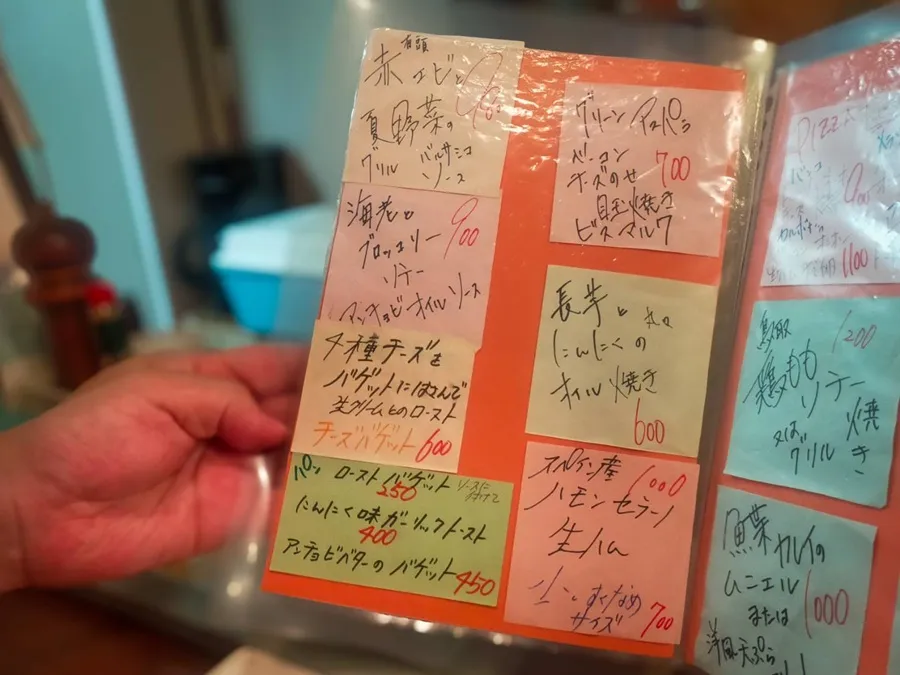 有頭
赤エビと
夏野菜の
グリル バルサミコ
ソース
海老と 900
ブロッコリー
ソテー
アンチョビオイルソース
4種チーズを
バゲットにはさんで
生クリームとのロースト
チーズバゲット 600
パン ローストバゲット
250
にんにく味ガーリックトースト
400
アンチョビバターのバゲット 450
グリーンアスパラ
ベーコン 700
チーズのせ
目玉焼き
ビスマルク
長芋と
にんにくの
オイル焼き
600
スペイン産 1000
ハモンセラーノ
生ハム
少なめ
サイズ 700
PIZZA
900
1100
鳥取 1200
鶏もも
ソテー
又は 焼き
グリル
魚 カレイの
ムニエル
または 1000
洋風天ぷら